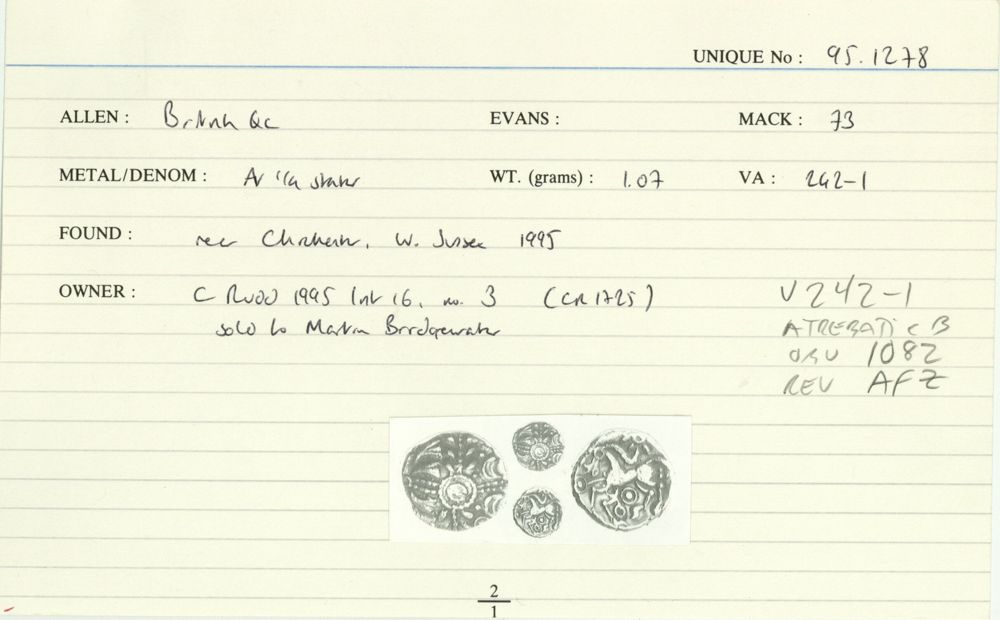 UNIQUE No : 95.1278
ALLEN : British Qc EVANS : MACK : 73
METAL/DENOM : AV 1/4 stater WT. (grams) : 1.07 VA : 242-1
FOUND : near Chichester, W. Sussex 1995
OWNER : C RUDD 1995 list 16, no. 3 (CR 1725) V242-1
sold to Martin Bridgewater ATREBATIC B
OBV 1082
REV AFZ
2
1